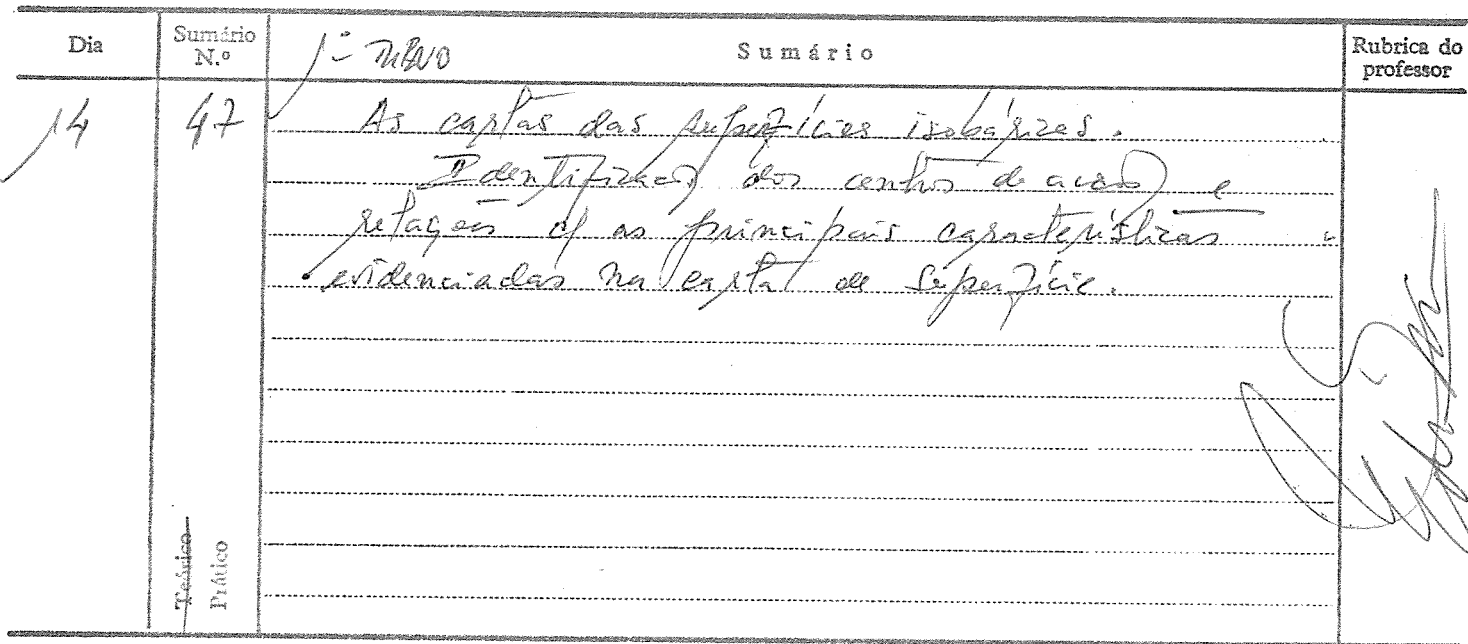 Dia
Sumário N.º
Sumário
Rubrica do professor
14
47
As cartas das superfícies isobáricas.
Identificação dos centros de acção e
relações c/ as principais características
evidenciadas na carta de superfície.
Teórico
Prático